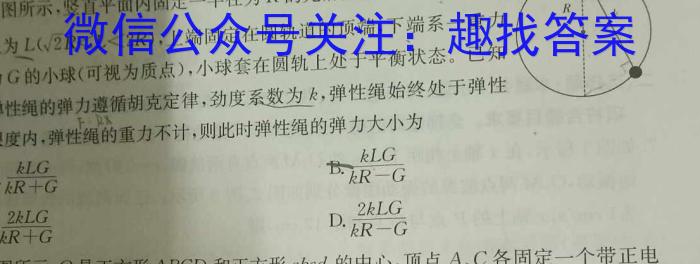 图所示，竖直平面内固定一半径为R的光
R
为L(√2
上端固定在圆轨道的顶端，下端系一重力
微信公众号关注：趣找答案
为G的小球(可视为质点)，小球套在圆轨上处于平衡状态。已知
弹性绳的弹力遵循胡克定律，劲度系数为k，弹性绳始终处于弹性
限度内，弹性绳的重力不计，则此时弹性绳的弹力大小为
kLG/(kR+G)
B. kLG/(kR-G)
2kLG/(kR+G)
D. 2kLG/(kR-G)
图所示，O是正方形ABCD和正方形abcd的中心，顶点A、C各固定一个带正电